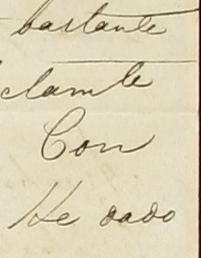 bastante
clamte
Con
He dado